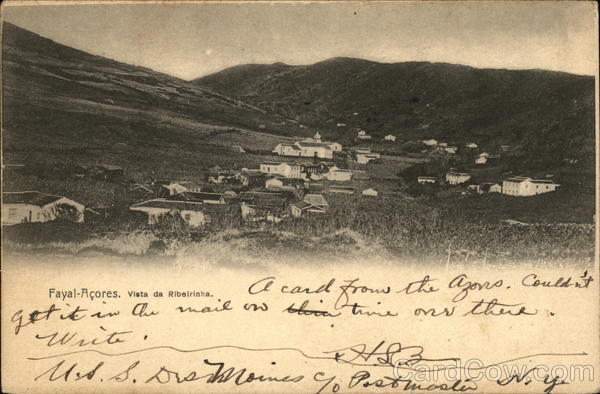 Fayal-Açores. Vista da Ribeirinha.
A card from the Azors. Couldn't
get it in the mail on this time over there.
Write.
HSB
U.S.S. Des Moines c/o Postmaster N.Y.
CardCow.com